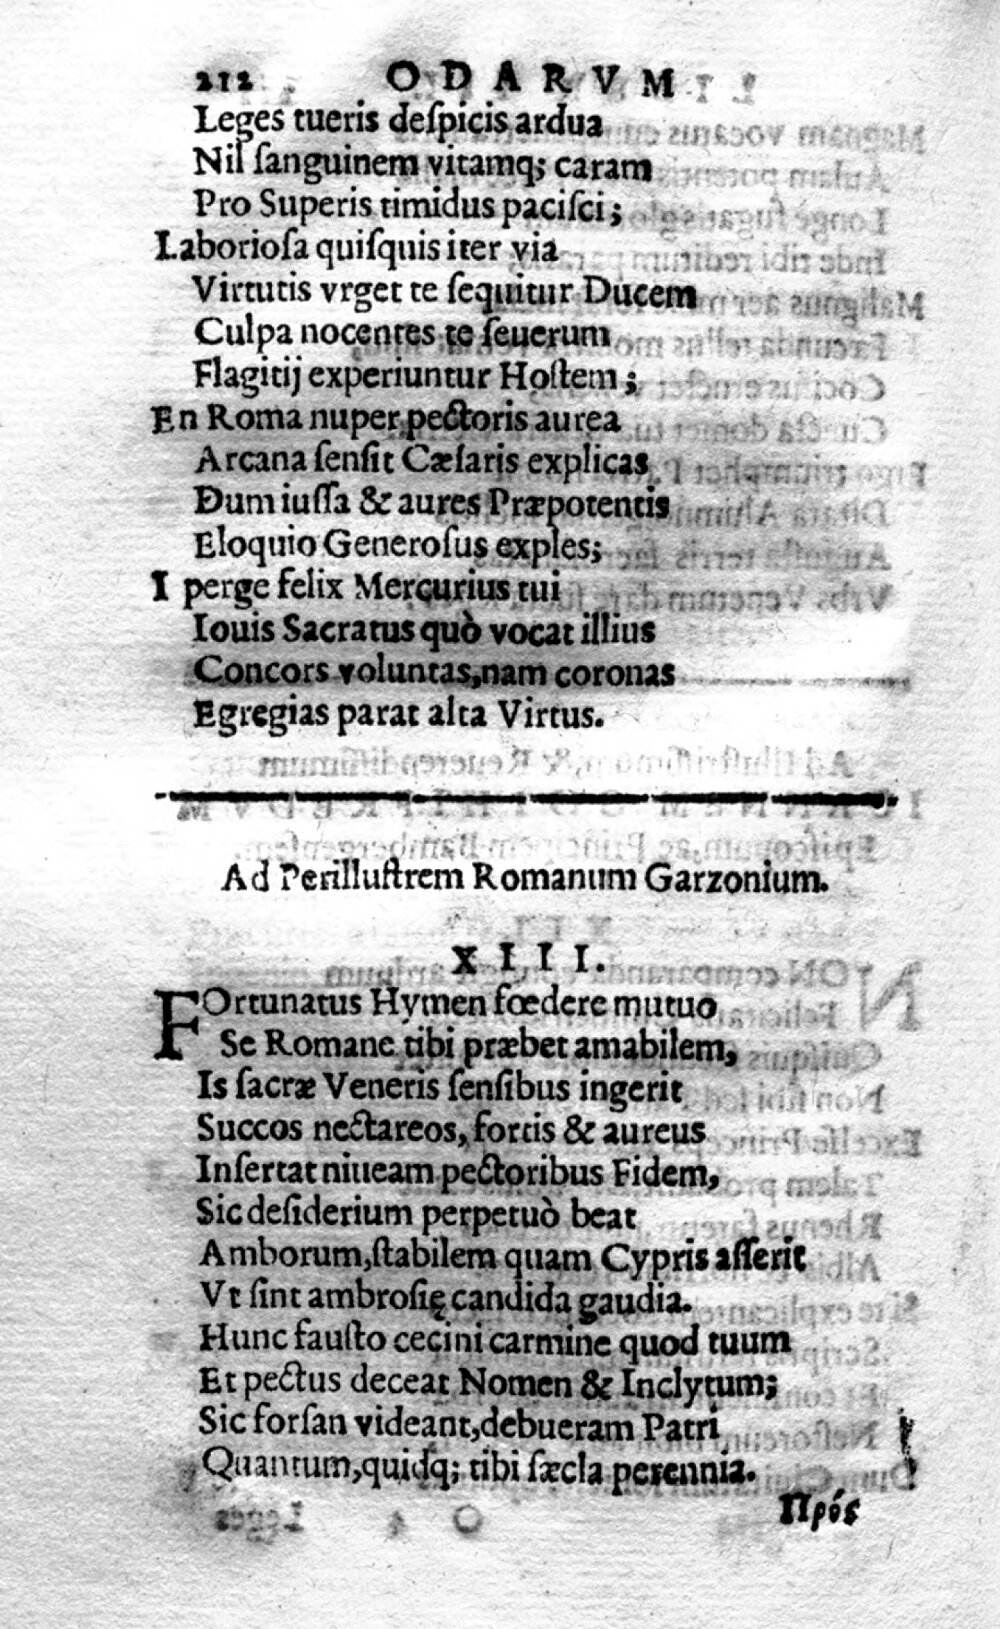 212 ODARVM
Leges tueris deſpicis ardua
Nil ſanguinem vitamq; caram
Pro Superis timidus paciſci;
Laborioſa quiſquis iter via
Virtutis vrget te ſequitur Ducem
Culpa nocentes te ſeuerum
Flagitij experiuntur Hoſtem;
En Roma nuper pectoris aurea
Arcana ſenſit Cæſaris explicas
Dum iuſſa & aures Præpotentis
Eloquio Generoſus exples;
I perge felix Mercurius tui
Iouis Sacratus quò vocat illius
Concors voluntas, nam coronas
Egregias parat alta Virtus.
Ad Perilluſtrem Romanum Garzonium.
XIII.
FOrtunatus Hymen fœdere mutuo
Se Romane tibi præbet amabilem,
Is ſacræ Veneris ſenſibus ingerit
Succos nectareos, fortis & aureus
Inſertat niueam pectoribus Fidem,
Sic deſiderium perpetuò beat
Amborum, ſtabilem quam Cypris aſſerit
Vt ſint ambroſię candida gaudia.
Hunc fauſto cecini carmine quod tuum
Et pectus deceat Nomen & Inclytum;
Sic forſan videant, debueram Patri
Quantum, quidq; tibi ſæcla perennia.
Πρός